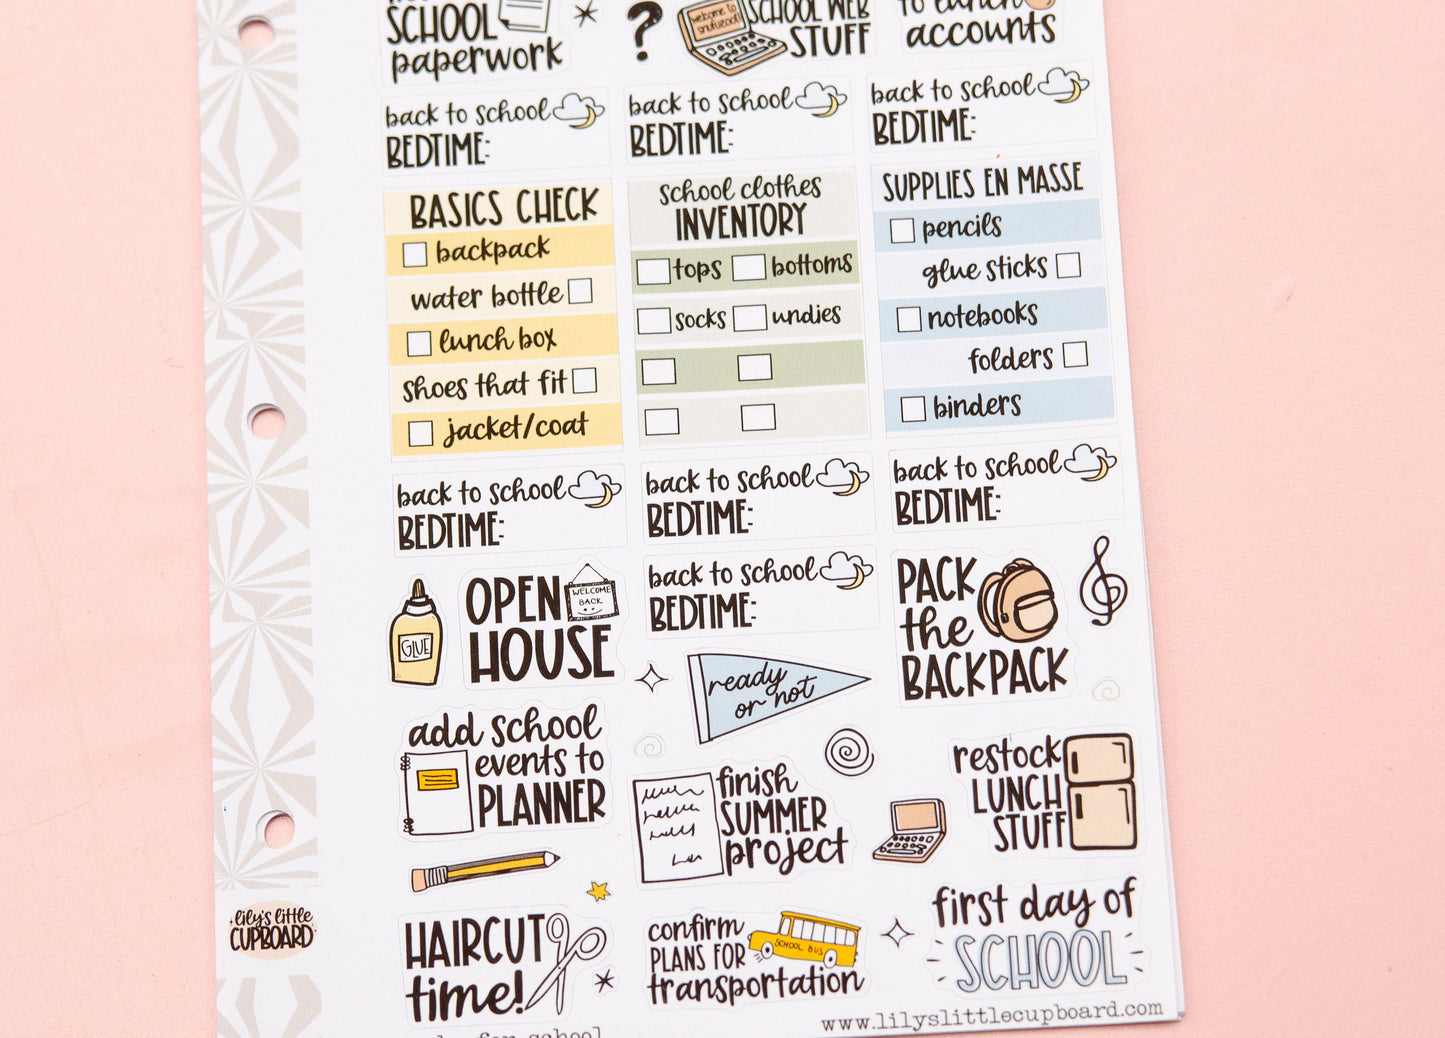 SCHOOL
paperwork
?
welcome to
SCHOOL WEB
STUFF
to lunch
accounts
back to school
BEDTIME:
back to school
BEDTIME:
back to school
BEDTIME:
BASICS CHECK
backpack
water bottle
lunch box
shoes that fit
jacket/coat
school clothes
INVENTORY
tops bottoms
socks undies
SUPPLIES EN MASSE
pencils
glue sticks
notebooks
folders
binders
back to school
BEDTIME:
back to school
BEDTIME:
back to school
BEDTIME:
GLUE
OPEN
HOUSE
WELCOME
BACK
back to school
BEDTIME:
PACK
the
BACKPACK
ready
or not
add school
events to
PLANNER
finish
SUMMER
project
restock
LUNCH
STUFF
HAIRCUT
time!
confirm
PLANS FOR
transportation
SCHOOL BUS
first day of
SCHOOL
lily's little
CUPBOARD
for school
www.lilyslittlecupboard.com